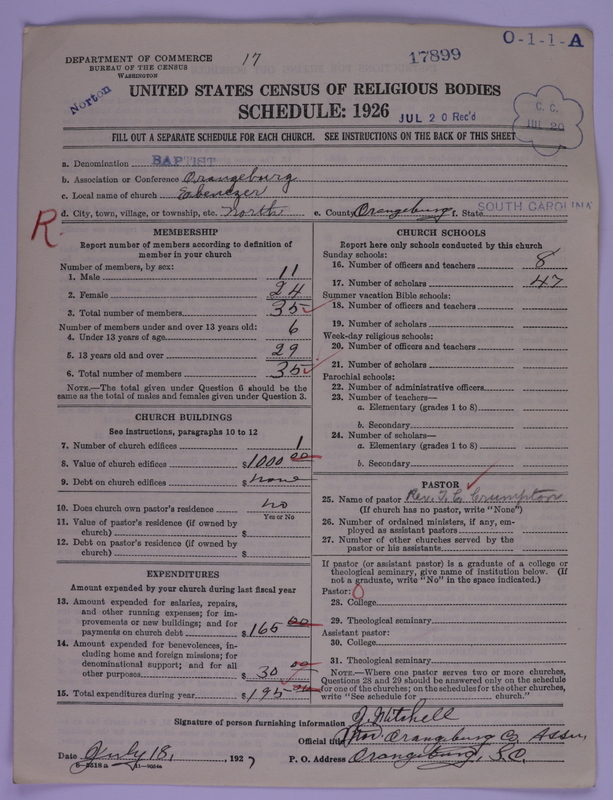 O-1-1-A
17
17899
DEPARTMENT OF COMMERCE
BUREAU OF THE CENSUS
WASHINGTON
Norton
UNITED STATES CENSUS OF RELIGIOUS BODIES
SCHEDULE: 1926
JUL 20 Rec'd
C. C.
JUL 20
FILL OUT A SEPARATE SCHEDULE FOR EACH CHURCH. SEE INSTRUCTIONS ON THE BACK OF THIS SHEET
a. Denomination BAPTIST
b. Association or Conference Orangeburg
c. Local name of church Ebenezer
d. City, town, village, or township, etc. North e. County Orangeburg f. State SOUTH CAROLINA
R
MEMBERSHIP
Report number of members according to definition of
member in your church
Number of members, by sex:
1. Male 11
2. Female 24
3. Total number of members 35
Number of members under and over 13 years old:
4. Under 13 years of age 6
5. 13 years old and over 29
6. Total number of members 35
NOTE.—The total given under Question 6 should be the
same as the total of males and females given under Question 3.
CHURCH BUILDINGS
See instructions, paragraphs 10 to 12
7. Number of church edifices 1
8. Value of church edifices $1000 00
9. Debt on church edifices $ none
10. Does church own pastor's residence no
Yes or No
11. Value of pastor's residence (if owned by
church) $
12. Debt on pastor's residence (if owned by
church) $
EXPENDITURES
Amount expended by your church during last fiscal year
13. Amount expended for salaries, repairs,
and other running expenses; for im-
provements or new buildings; and for
payments on church debt $165 00
14. Amount expended for benevolences, in-
cluding home and foreign missions; for
denominational support; and for all
other purposes $ 30 00
15. Total expenditures during year $195 00
CHURCH SCHOOLS
Report here only schools conducted by this church
Sunday schools:
16. Number of officers and teachers 8
17. Number of scholars 47
Summer vacation Bible schools:
18. Number of officers and teachers
19. Number of scholars
Week-day religious schools:
20. Number of officers and teachers
21. Number of scholars
Parochial schools:
22. Number of administrative officers
23. Number of teachers—
a. Elementary (grades 1 to 8)
b. Secondary
24. Number of scholars—
a. Elementary (grades 1 to 8)
b. Secondary
PASTOR
25. Name of pastor Rev. T. C. Crumpton
(If church has no pastor, write "None")
26. Number of ordained ministers, if any, em-
ployed as assistant pastors
27. Number of other churches served by the
pastor or his assistants
If pastor (or assistant pastor) is a graduate of a college or
theological seminary, give name of institution below. (If
not a graduate, write "No" in the space indicated.)
Pastor: 0
28. College
29. Theological seminary
Assistant pastor:
30. College
31. Theological seminary
NOTE.—Where one pastor serves two or more churches,
Questions 28 and 29 should be answered only on the schedule
for one of the churches; on the schedules for the other churches,
write "See schedule for church."
Signature of person furnishing information J. Mitchell
Official title Mod. Orangeburg Co Assn,
Date July 18, 1927 P. O. Address Orangeburg, S.C.